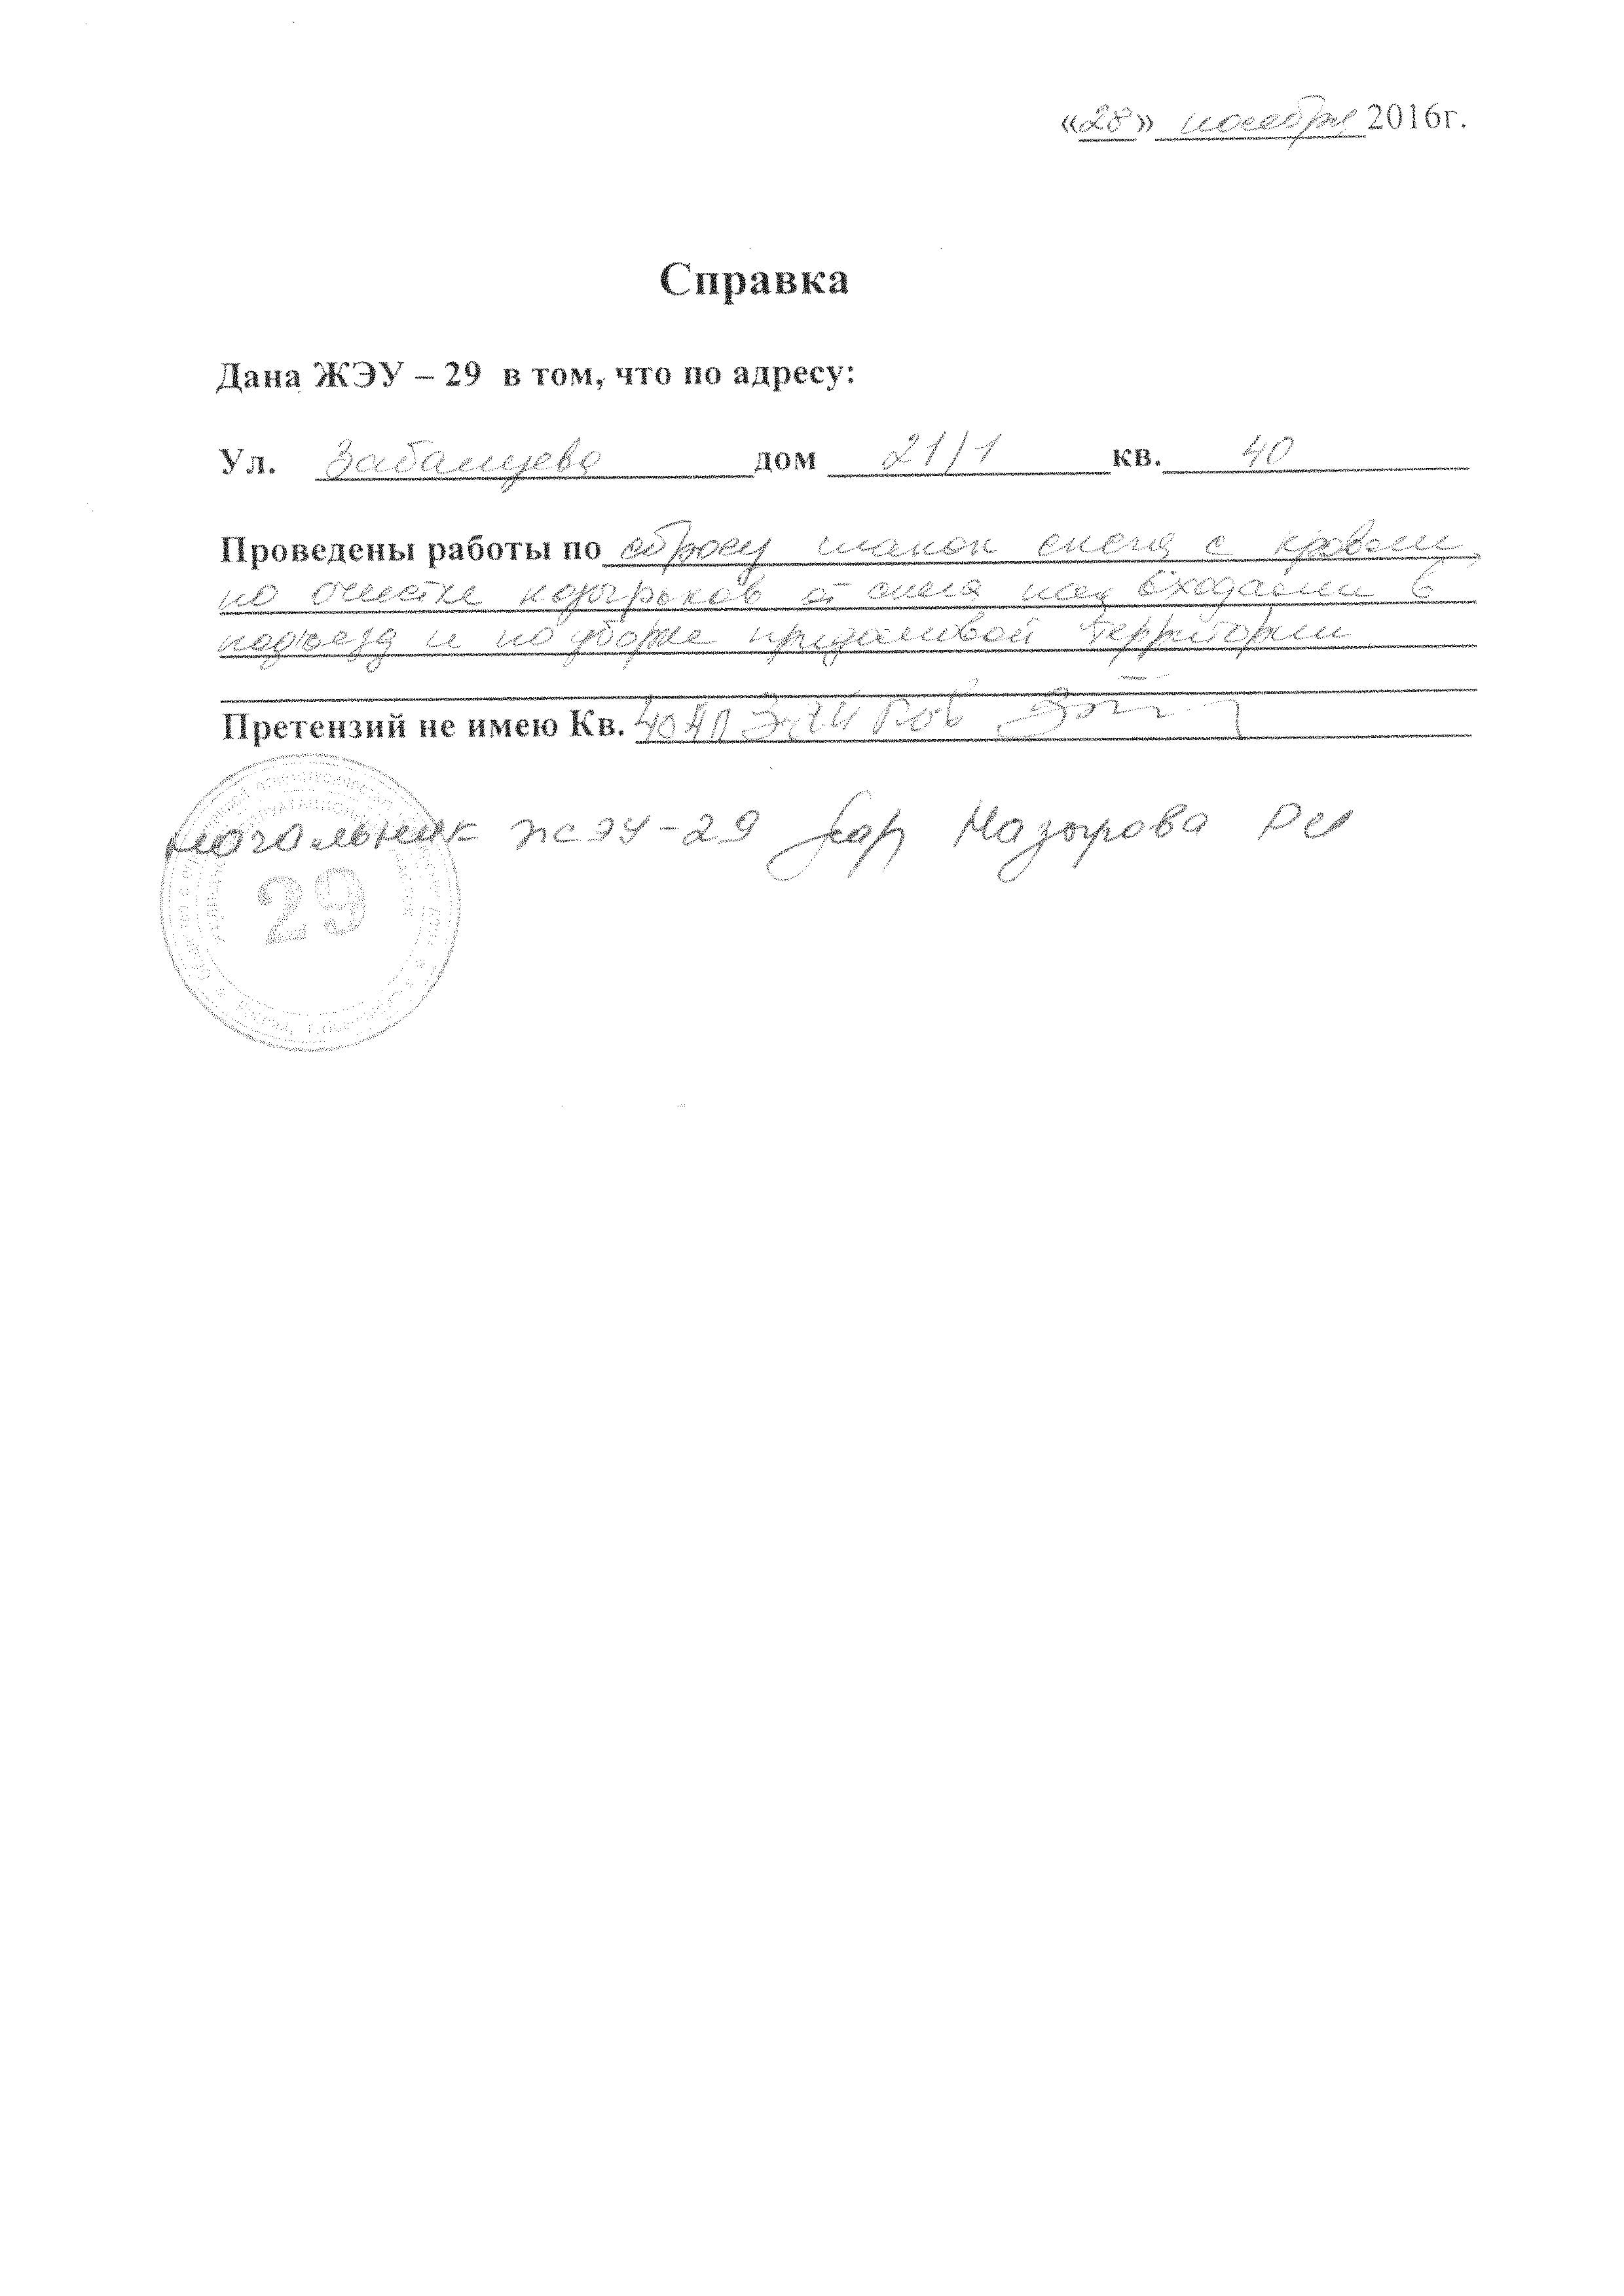 «28» ноября 2016г.
Справка
Дана ЖЭУ – 29 в том, что по адресу:
Ул. Забалуева дом 21/1 кв. 40
Проведены работы по сбросу шапок снега с кровли,
по очистке козырьков от снега над входами в
подъезд и по уборке придомовой территории
Претензий не имею Кв. 40
начальник ЖЭУ-29 Назырова РИ
29